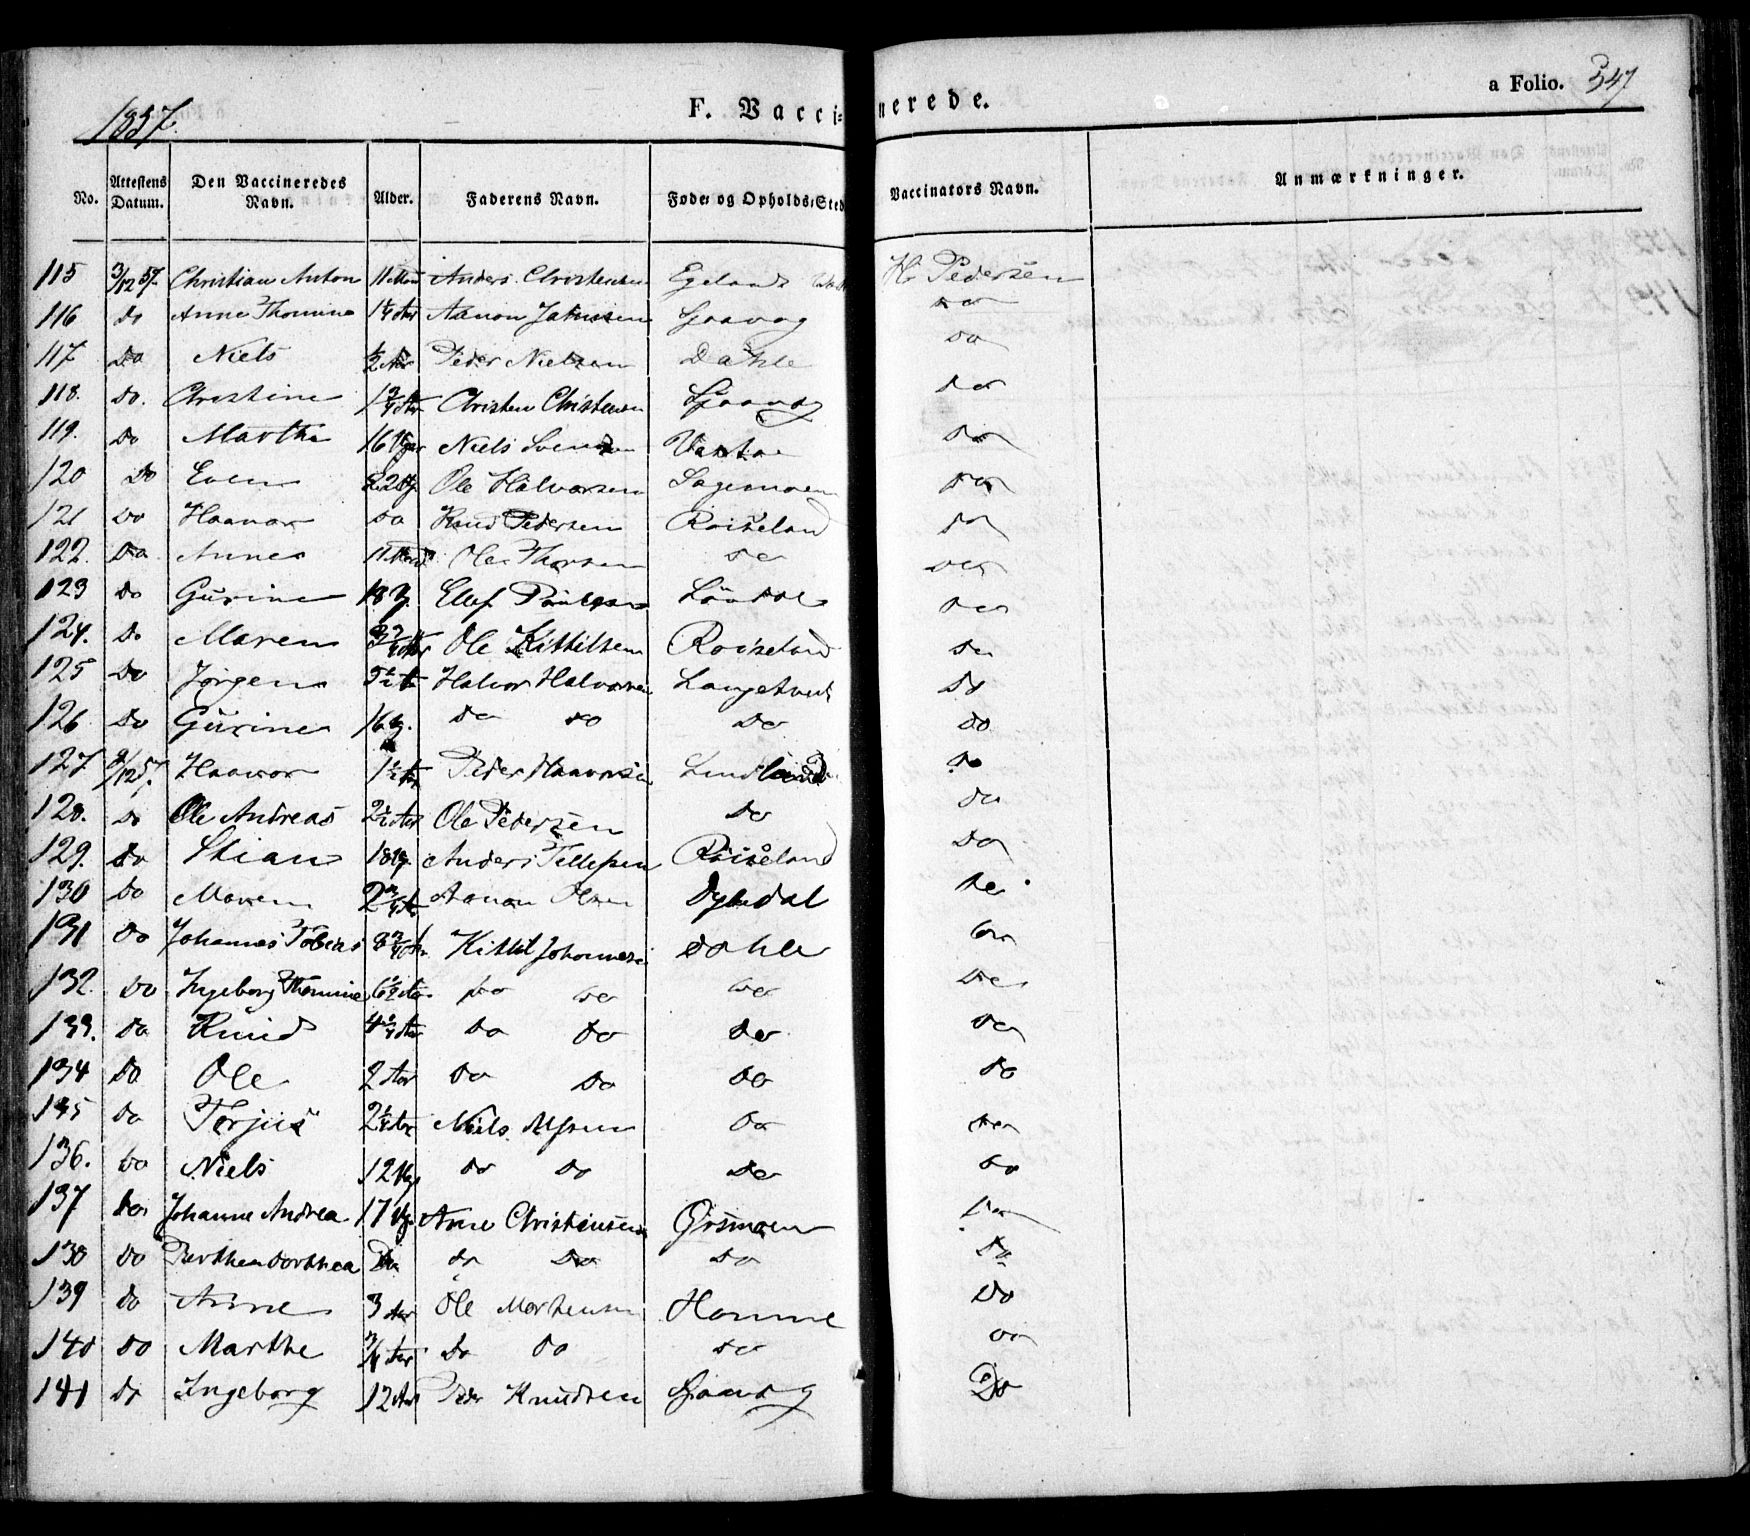 1857.
F. Vaccinerede.
a Folio. 347
No. Attestens Datum. Den Vaccineredes Navn. Alder. Faderens Navn. Føde- og Opholds-Sted Vaccinators Navn. Anmærkninger.
115 3/12 57. Christian Anton 11 Anders Christensen Egeland H. Pedersen
116 do Anne Thomine 1 1/4 Aar Aanon Sjaavag do
117 Do Niels 1/2 Aar Peder Nielsen Dahle do
118. Do. Christine 1 3/4 Aar Christen Christensen Sjaavag do
119. Do Marthe 16 Uger Niels Svendsen do
120 Do Even 22 Ug Ole Halvorsen Sagemoen do
121 Do Haavor do Knud Pedersen Roiseland do
122. Do. Annes 11 Ole Thorsen do do
123 Do Gurine 18 Ellef Poulsen do
124. Do Maren Ole Kittilsen Roiseland do
125 Do Jørgen 5 1/2 Halvor Halvorsen Langetvedt Do
126 Do Gurine 16 Do do Do Do
127 9/12 57. Haavor 1 1/2 Peder Haavorsen Lindland Do
128. Do Ole Andreas 2 1/2 Aar Ole Pedersen Do Do
129. Do Stian 18 Ug. Anders Tellefsen Roiseland Do
130 Do Maren 2 3/4 Aar Aanon Olsen Dybdal Do
131 Do Johannes Tobias 8 3/4 Kittil Johannesen Dahle Do
132. Do Ingeborg Thomine 6 1/2 Aar Do Do Do Do
133. Do Knud 4 Aar Do Do Do Do
134 Do Ole 2 Aar Do Do Do Do
135 Do Terjus 2 1/4 Aar Niels Do Do
136. Do Niels 12 Ug Do Do Do Do
137 Do Johanne Andrea 17 Ug. Arne Christensen Ørsmoen Do
138 Do Berthe Dorthea Do do Do Do Do
139 Do Anne 3 Aar Ole Mortensen Homme Do
140 Do Marthe 3/4 Aar Do Do Do Do
141 Do Ingeborg 12 Aar Peder Knudsen Sjaavag Do